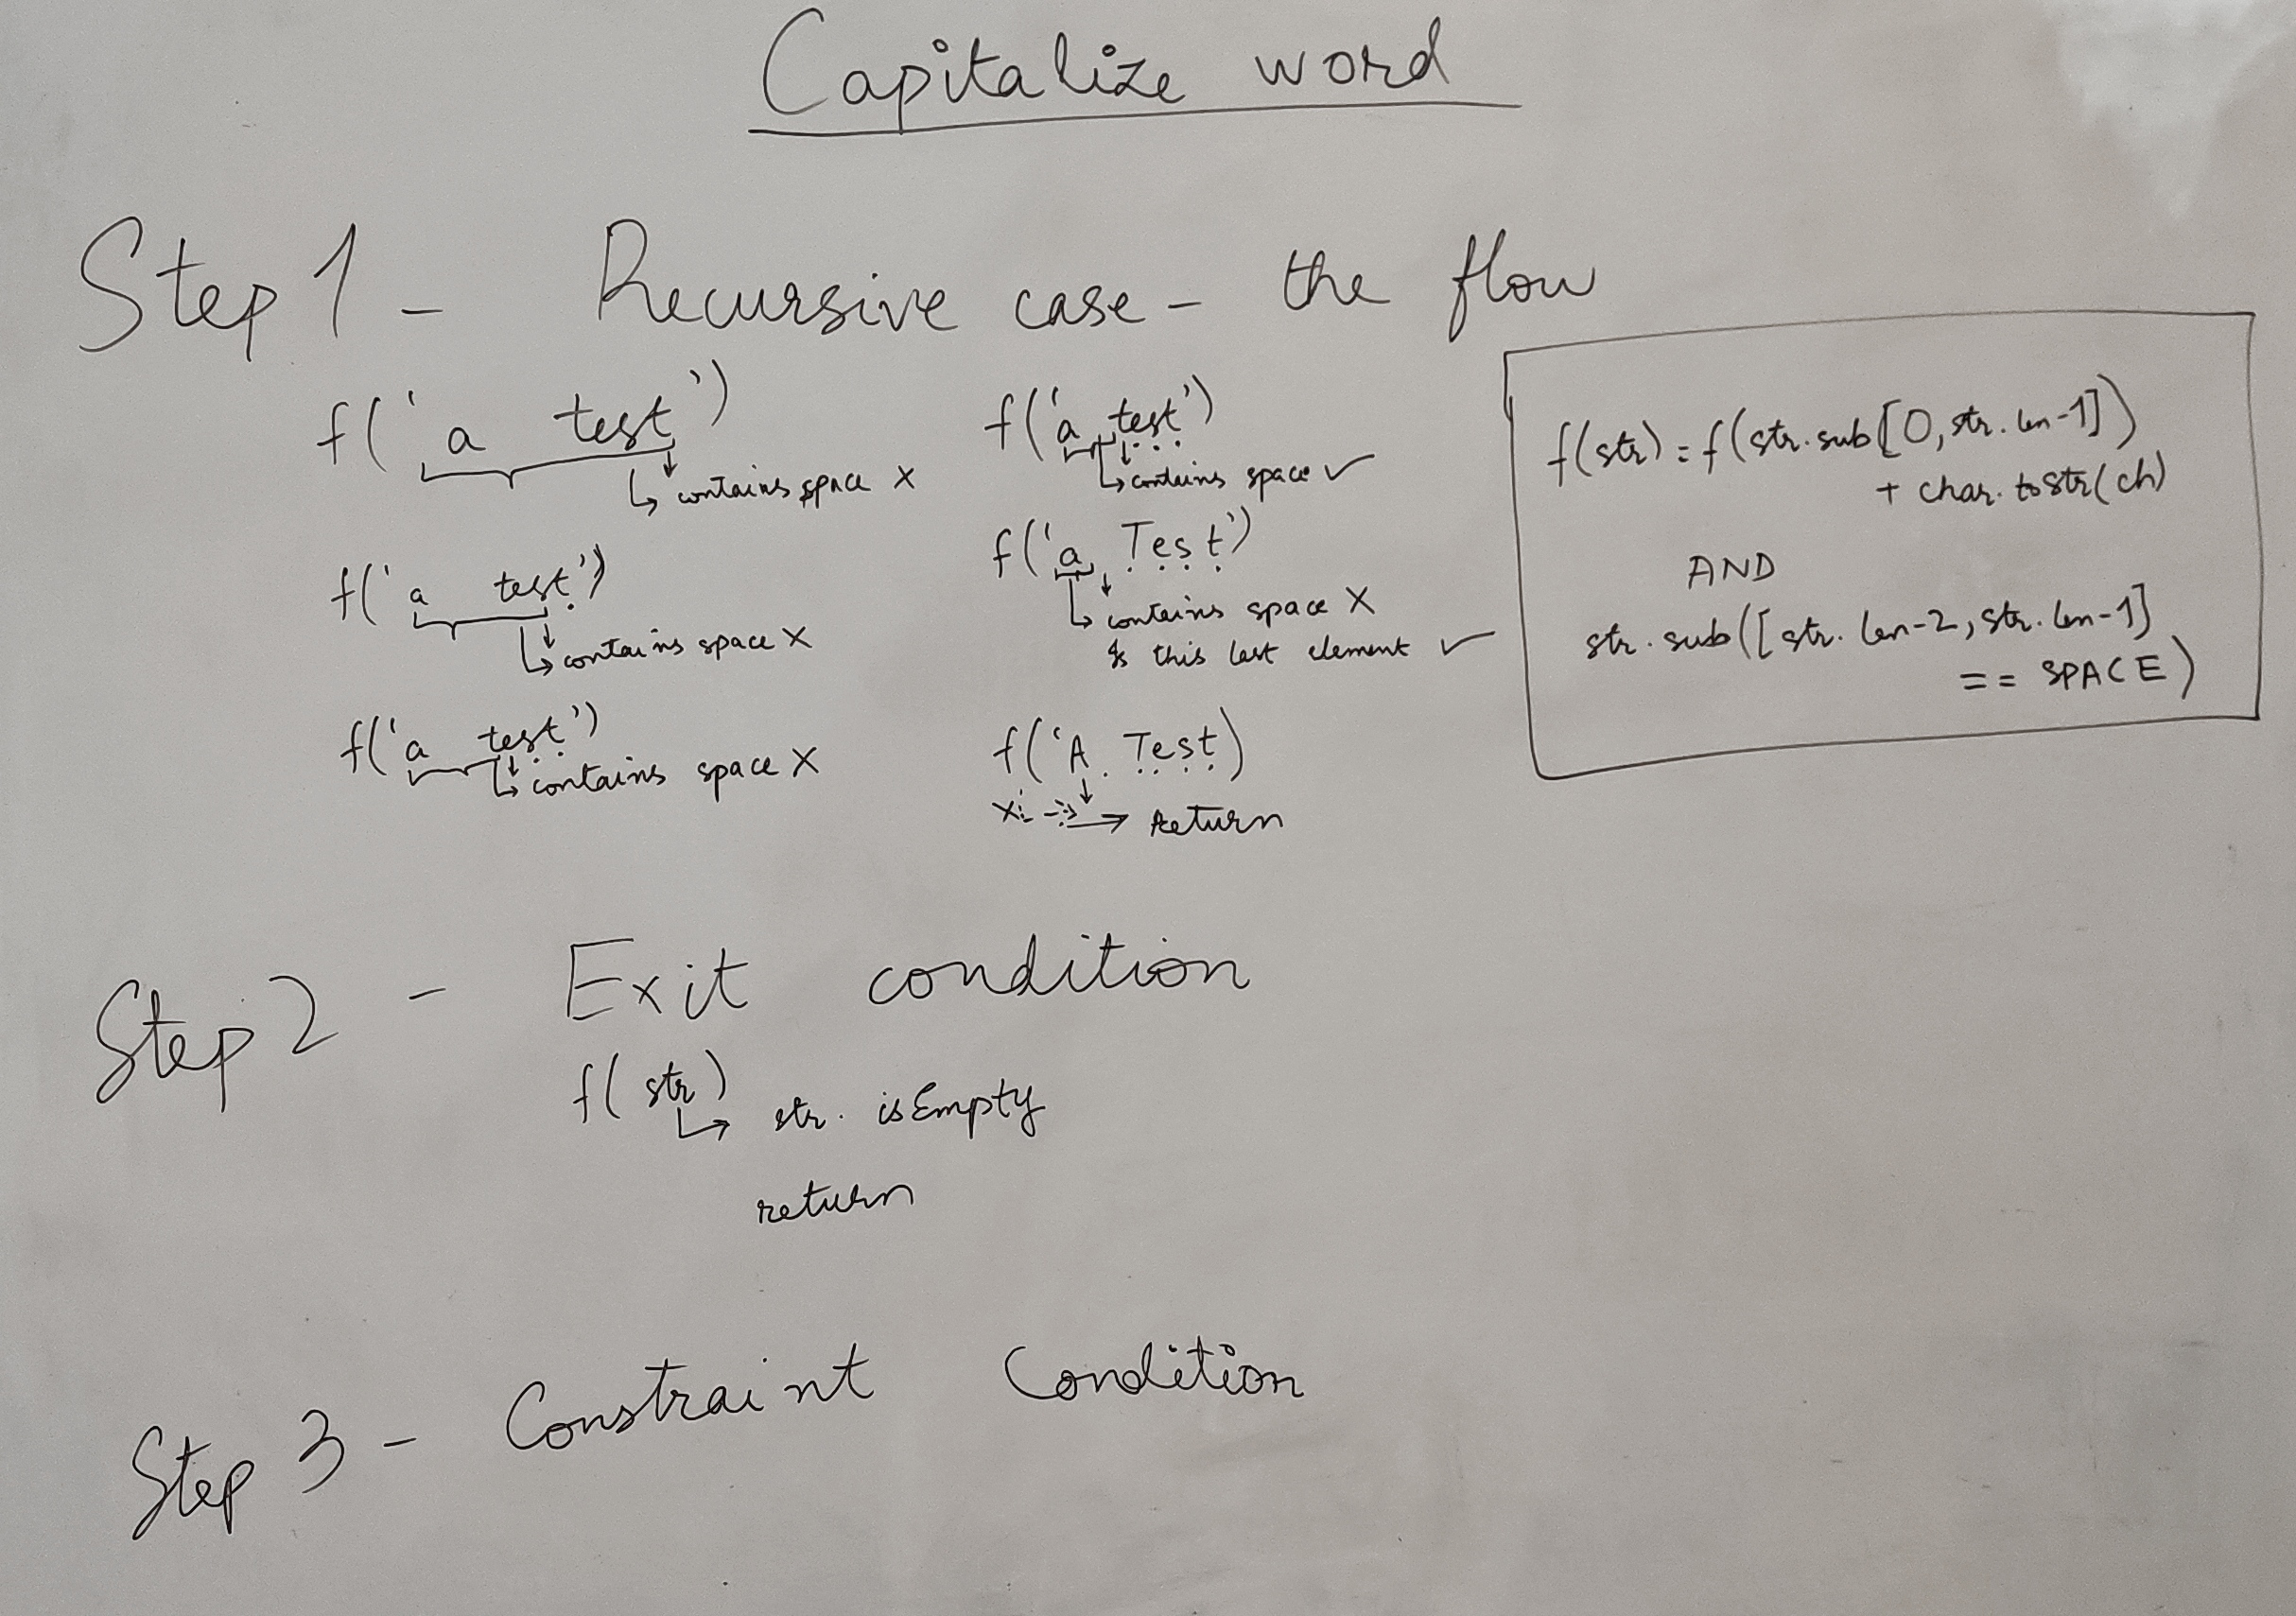 Capitalize word
Step 1 - Recursive case - the flow
f('a test')
contains space x
f('a test')
contains space x
f('a test')
contains space x
f('a test')
contains space ✓
f('a Test')
contains space x
this last element ✓
f('A Test)
→ Return
f(str) = f(str.sub[0, str.len-1])
+ char.toStr(ch)
AND
str.sub([str.len-2, str.len-1]
== SPACE)
Step 2 - Exit condition
f(str)
str. isEmpty
return
Step 3 - Constraint Condition